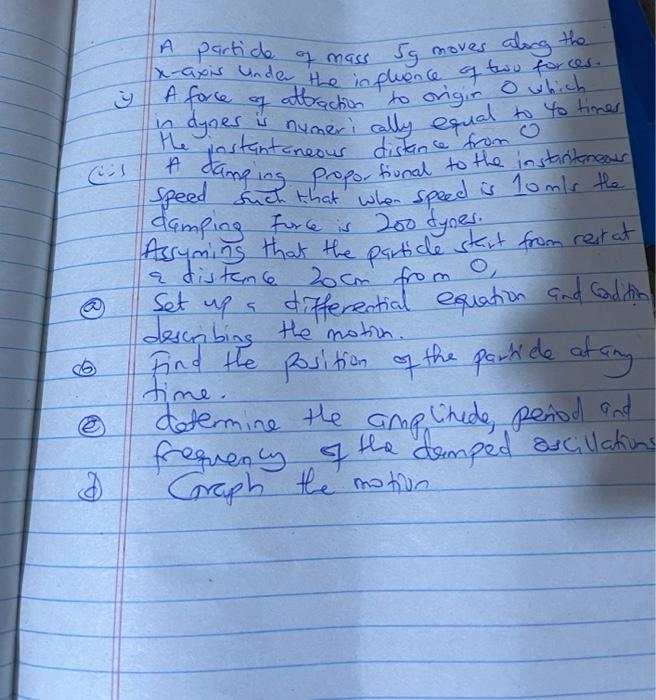 A particle of mass 5g moves along the
x-axis under the influence of two forces.
i) A force of attraction to origin O which
in dynes is numerically equal to 40 times
the instantaneous distance from O
(ii) A damping proportional to the instantaneous
speed such that when speed is 10m/s the
damping force is 200 dynes.
Assuming that the particle start from rest at
a distance 20cm from O,
(a) Set up a differential equation and condition
describing the motion.
(b) Find the position of the particle at any
time.
(c) determine the amplitude, period and
frequency of the damped oscillations
(d) Graph the motion